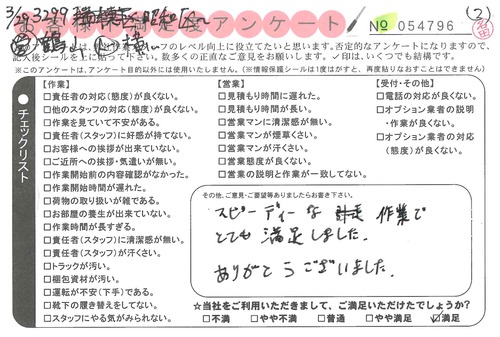 お客様満足度アンケート
№ 054796
②
3/29 3299
このアンケートは、
フのレベル向上に役立てたいと思います。否定的なアンケートになりますので、
記入後シールを上に貼って下さい。数多くの正直なご意見をお願いします。✓印は、いくつでも結構です。
※このアンケートは、アンケート目的以外には使用いたしません。(※情報保護シールは1度はがすと、再度貼りなおすことはできません)
チェックリスト
【作業】
□責任者の対応(態度)が良くない。
□他のスタッフの対応(態度)が良くない。
□作業を見ていて不安がある。
□責任者(スタッフ)に好感が持てない。
□お客様への挨拶が出来ていない。
□ご近所への挨拶・気遣いが無い。
□作業開始前の内容確認がなかった。
□作業開始時間が遅れた。
□荷物の取り扱いが雑である。
□お部屋の養生が出来ていない。
□作業時間が長すぎる。
□責任者(スタッフ)に清潔感が無い。
□責任者(スタッフ)が汗くさい。
□トラックが汚い。
□梱包資材が汚い。
□運転が不安(下手)である。
□靴下の履き替えをしてない。
□スタッフにやる気がみられない。
【営業】
□見積もり時間に遅れた。
□見積もり時間が長い。
□営業マンに清潔感が無い。
□営業マンが煙草くさい。
□営業マンが汗くさい。
□営業態度が良くない。
□営業の説明と作業が一致してない。
【受付・その他】
□電話の対応が良くない。
□オプション業者の説明
・作業が良くない。
□オプション業者の対応
(態度)が良くない。
その他、ご意見・ご要望等ありましたらお書き下さい。
スピーディーな 作業で
とても 満足しました。
ありがとうございました。
☆当社をご利用いただきまして、ご満足いただけたでしょうか?
□不満 □やや不満 □普通 □やや満足 ☑満足